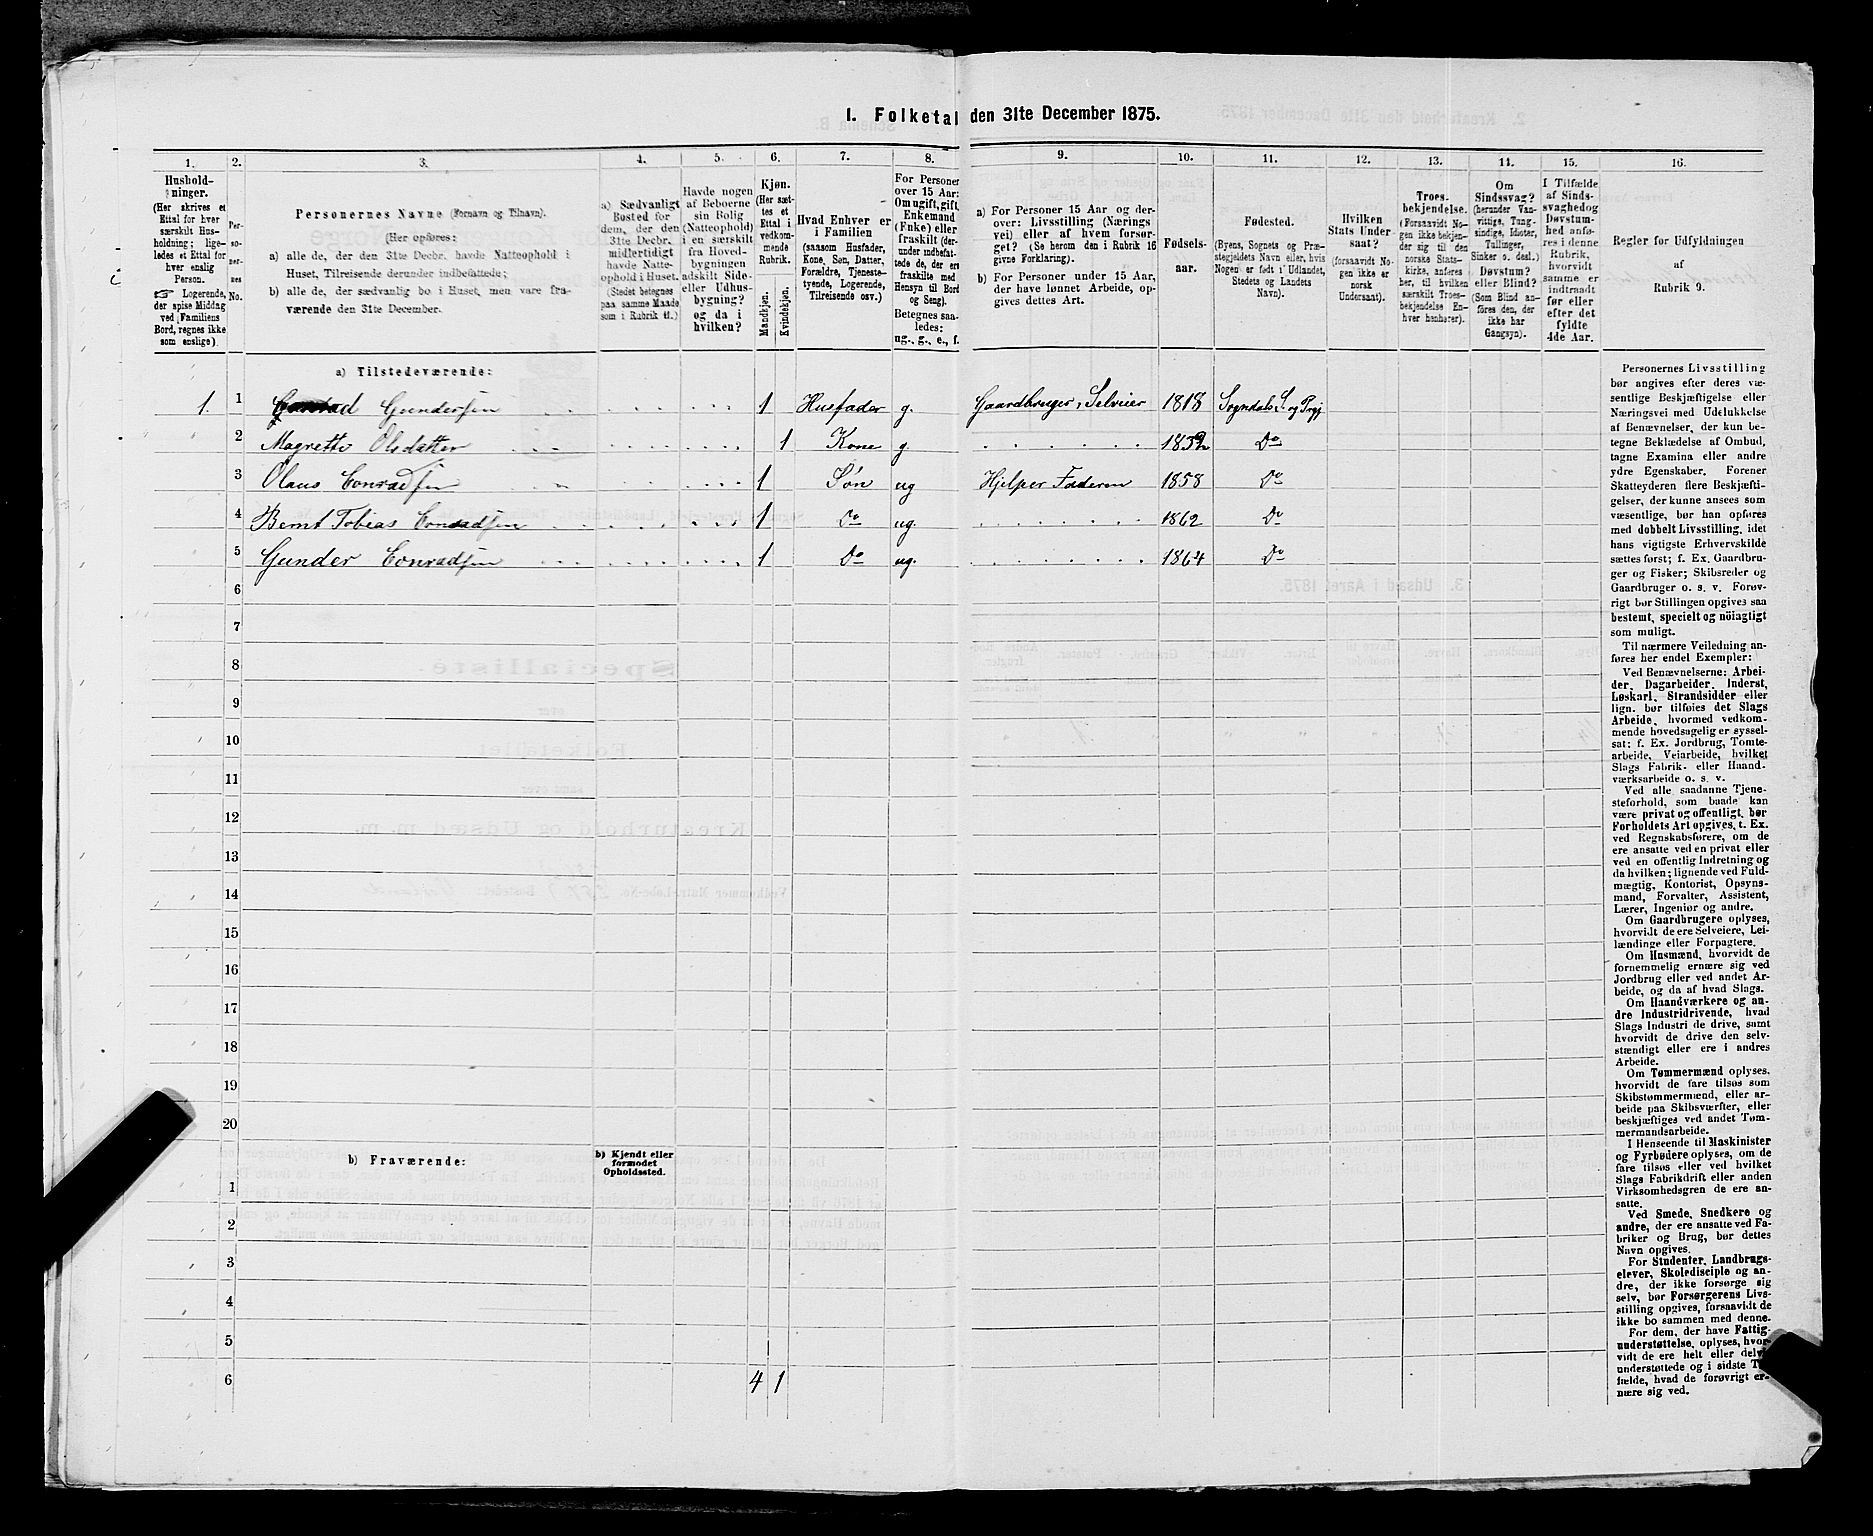 1. Folketal den 31te December 1875.
1. 2. 3. 4. 5. 6. 7. 8. 9. 10. 11. 12. 13. 14. 15. 16.
Hushold-
ninger.
(Her skrives et
Ettal for hver
særskilt Hus-
holdning; lige-
ledes et Ettal for
hver enslig
Person.
☞ Logerende,
der spise Middag
ved Familiens
Bord, regnes ikke
som enslige).
Per-
so-
ner-
nes
No.
Personernes Navne (Fornavn og Tilnavn).
(Her opføres:
a) alle de, der den 31te Decbr. havde Natteophold i
Huset, Tilreisende derunder indbefattede;
b) alle de, der sædvanlig bo i Huset, men vare fra-
værende den 31te December.
a) Sædvanligt
Bosted for
dem, der den
31te Decbr.
midlertidigt
havde Natte-
ophold i Huset.
(Stedet betegnes
paa samme Maade
som i Rubrik 11.)
Havde nogen
af Beboerne
sin Bolig
(Natteophold)
i en særskilt
fra Hoved-
bygningen
adskilt Side-
eller Udhus-
bygning?
og da i
hvilken?
Kjøn.
(Her sæt-
tes et
Ettal i
vedkom-
mende
Rubrik.
Mandkjøn.
Kvindekjøn.
Hvad Enhver er
i Familien
(saasom Husfader,
Kone, Søn, Datter,
Forældre, Tjeneste-
tyende, Logerende,
Tilreisende osv.)
For Personer
over 15 Aar:
Om ugift, gift,
Enkemand
(Enke) eller
fraskilt (der-
under indbefat-
tede de, der ere
fraskilte med
Hensyn til Bord
og Seng).
Betegnes saa-
ledes:
ug., g., e., f.
a) For Personer 15 Aar og der-
over: Livsstilling (Nærings-
vei) eller af hvem forsør-
get? (Se herom den i Rubrik 16
givne Forklaring).
b) For Personer under 15 Aar,
der have lønnet Arbeide, op-
gives dettes Art.
Fødsels-
aar.
Fødested.
(Byens, Sognets og Præ-
stegjeldets Navn eller, hvis
Nogen er født i Udlandet,
Stedets og Landets
Navn).
Hvilken
Stats Under-
saat?
(forsaavidt No-
gen ikke er
norsk
Undersaat).
Troes-
bekjendelse.
(Forsaavidt No-
gen ikke bekjen-
der sig til den
norske Stats-
kirke, anføres
her, til hvilken
særskilt Troes-
bekjendelse En-
hver henhører).
Om
Sindssvag?
(herunder Van-
vittige, Tung-
sindige, Idioter,
Tullinger,
Sinker o. desl.)
Døvstum?
eller Blind?
(Som Blind an-
føres den, der
ikke har
Gangsyn).
I Tilfælde
af Sinds-
svaghedog
Døvstum-
hed anfø-
res i denne
Rubrik,
hvorvidt
samme er
indtraadt
før eller
efter det
fyldte
4de Aar.
Regler for Udfyldningen
af
Rubrik 9.
a) Tilstedeværende:
1. 1 Conrad Gundersen 1 Husfader g. Gaardbruger, Selveier 1818 Sogndals S. og Prgj
2 Magrette Olsdatter 1 Kone g 1832 Do
3 Olaus Conradsen 1 Søn ug Hjelper Faderen 1858 Do
4 Bernt Tobias Conradsen 1 Do ug. 1862 Do
5 Gunder Conradsen 1 Do ug. 1864 Do
6
7
8
9
10
11
12
13
14
15
16
17
18
19
20
b) Fraværende:
b) Kjendt eller
formodet
Opholdssted.
1
2
3
4
5
6 4 1
Personernes Livsstilling
bør angives efter deres væ-
sentlige Beskjæftigelse eller
Næringsvei med Udelukkelse
af Benævnelser, der kun be-
tegne Beklædelse af Ombud,
tagne Examina eller andre
ydre Egenskaber. Forener
Skatteyderen flere Beskjæfti-
gelser, der kunne ansees som
væsentlige, bør han opføres
med dobbelt Livsstilling, idet
hans vigtigste Erhvervskilde
sættes først; f. Ex. Gaardbru-
ger og Fisker; Skibsreder og
Gaardbruger o. s. v. Forøv-
rigt bør Stillingen opgives saa
bestemt, specielt og nöiagtigt
som muligt.
Til nærmere Veiledning an-
føres her endel Exempler:
Ved Benævnelserne: Arbei-
der, Dagarbeider, Inderst,
Løskarl, Strandsidder eller
lign. bør tilføies det Slags
Arbeide, hvormed vedkom-
mende hovedsagelig er syssel-
sat; f. Ex. Jordbrug, Tomte-
arbeide, Veiarbeide, hvilket
Slags Fabrik- eller Haand-
værksarbeide o. s. v.
Ved alle saadanne Tjene-
steforhold, som baade kan
være privat og offentligt, bør
Forholdets Art opgives, t. Ex.
ved Regnskabsførere, om de
ere ansatte ved en privat eller
ved en offentlig Indretning og
da hvilken; lignende ved Fuld-
mægtig, Kontorist, Opsyns-
mand, Forvalter, Assistent,
Lærer, Ingeniør og andre.
Om Gaardbrugere oplyses,
hvorvidt de ere Selveiere, Lei-
lændinge eller Forpagtere.
Om Husmænd, hvorvidt de
fornemmelig ernære sig ved
Jordbrug eller ved andet Ar-
beide, og da af hvad Slags.
Om Haandværkere og an-
dre Industridrivende, hvad
Slags Industri de drive, samt
hvorvidt de drive den selv-
stændigt eller ere i andres
Arbeide.
Om Tømmermænd oplyses,
hvorvidt de fare tilsøs som
Skibstømmermænd, eller ar-
beide paa Skibsværfter, eller
beskjæftiges ved andet Tøm-
mermandsarbeide.
I Henseende til Maskinister
og Fyrbødere oplyses, om de
fare tilsøs eller ved hvilket
Slags Fabrikdrift eller anden
Virksomhedsgren de ere an-
satte.
Ved Smede, Snedkere og
andre, der ere ansatte ved Fa-
briker og Brug, bør dettes
Navn opgives.
For Studenter, Landbrugs-
elever, Skoledisciple og an-
dre, der ikke forsørge sig
selv, bør Forsørgerens Livs-
stilling opgives, forsaavidt de
ikke bo sammen med denne.
For dem, der have Fattig-
understøttelse, oplyses, hvor-
vidt de ere helt eller delv
understøttede og i sidste T
fælde, hvad de forøvrigt er-
nære sig ved.